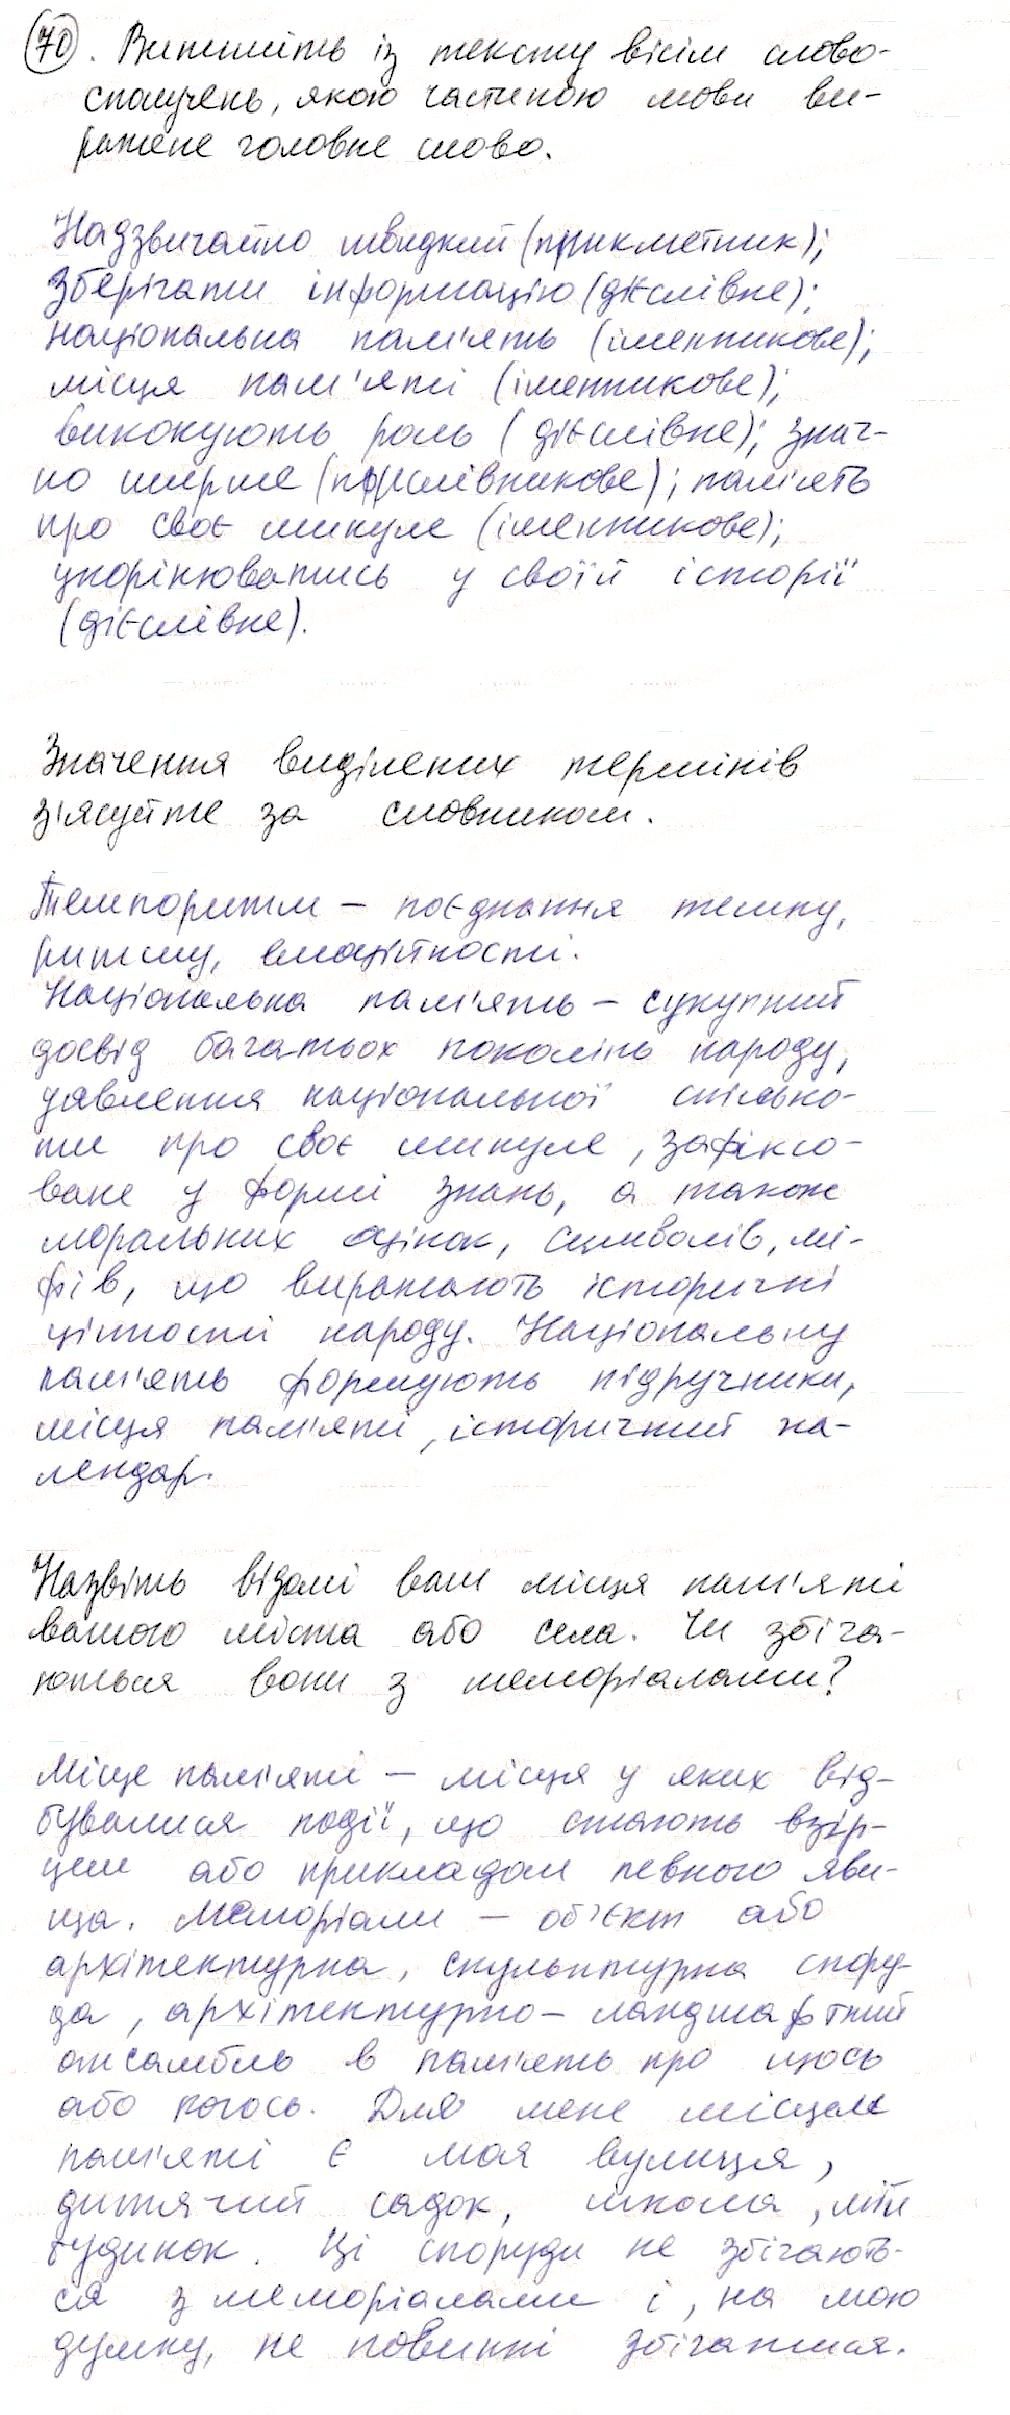 70. Випишіть із тексту вісім слово-
сполучень, якою частиною мови ви-
ражене головне слово.
Надзвичайно швидкий (прикметник);
зберігати інформацію (дієслівне);
національна пам'ять (іменникове);
місця пам'яті (іменникове);
виконують роль (дієслівне); знач-
но ширше (прислівникове); пам'ять
про своє минуле (іменникове);
укорінюватись у своїй історії
(дієслівне).
Значення виділених термінів
з'ясуйте за словником.
Темпоритм – поєднання темпу,
ритму, емоційності.
Національна пам'ять – сукупний
досвід багатьох поколінь народу,
уявлення національної спільно-
ти про своє минуле, зафіксо-
ване у формі знань, а також
моральних оцінок, символів, мі-
фів, що виражають історичні
цінності народу. Національну
пам'ять формують підручники,
місця пам'яті, історичний ка-
лендар.
Назвіть відомі вам місця пам'яті
вашого міста або села. Чи збіга-
ються вони з меморіалами?
Місце пам'яті – місця у яких від-
бувалися події, що стають взір-
цем або прикладом певного яви-
ща. Меморіали – об'єкт або
архітектурна, скульптурна спору-
да, архітектурно-ландшафтний
ансамбль в пам'ять про щось
або когось. Для мене місцем
пам'яті є моя вулиця,
дитячий садок, школа, мій
будинок. Ці споруди не збігають-
ся з меморіалами і, на мою
думку, не повинні збігатися.